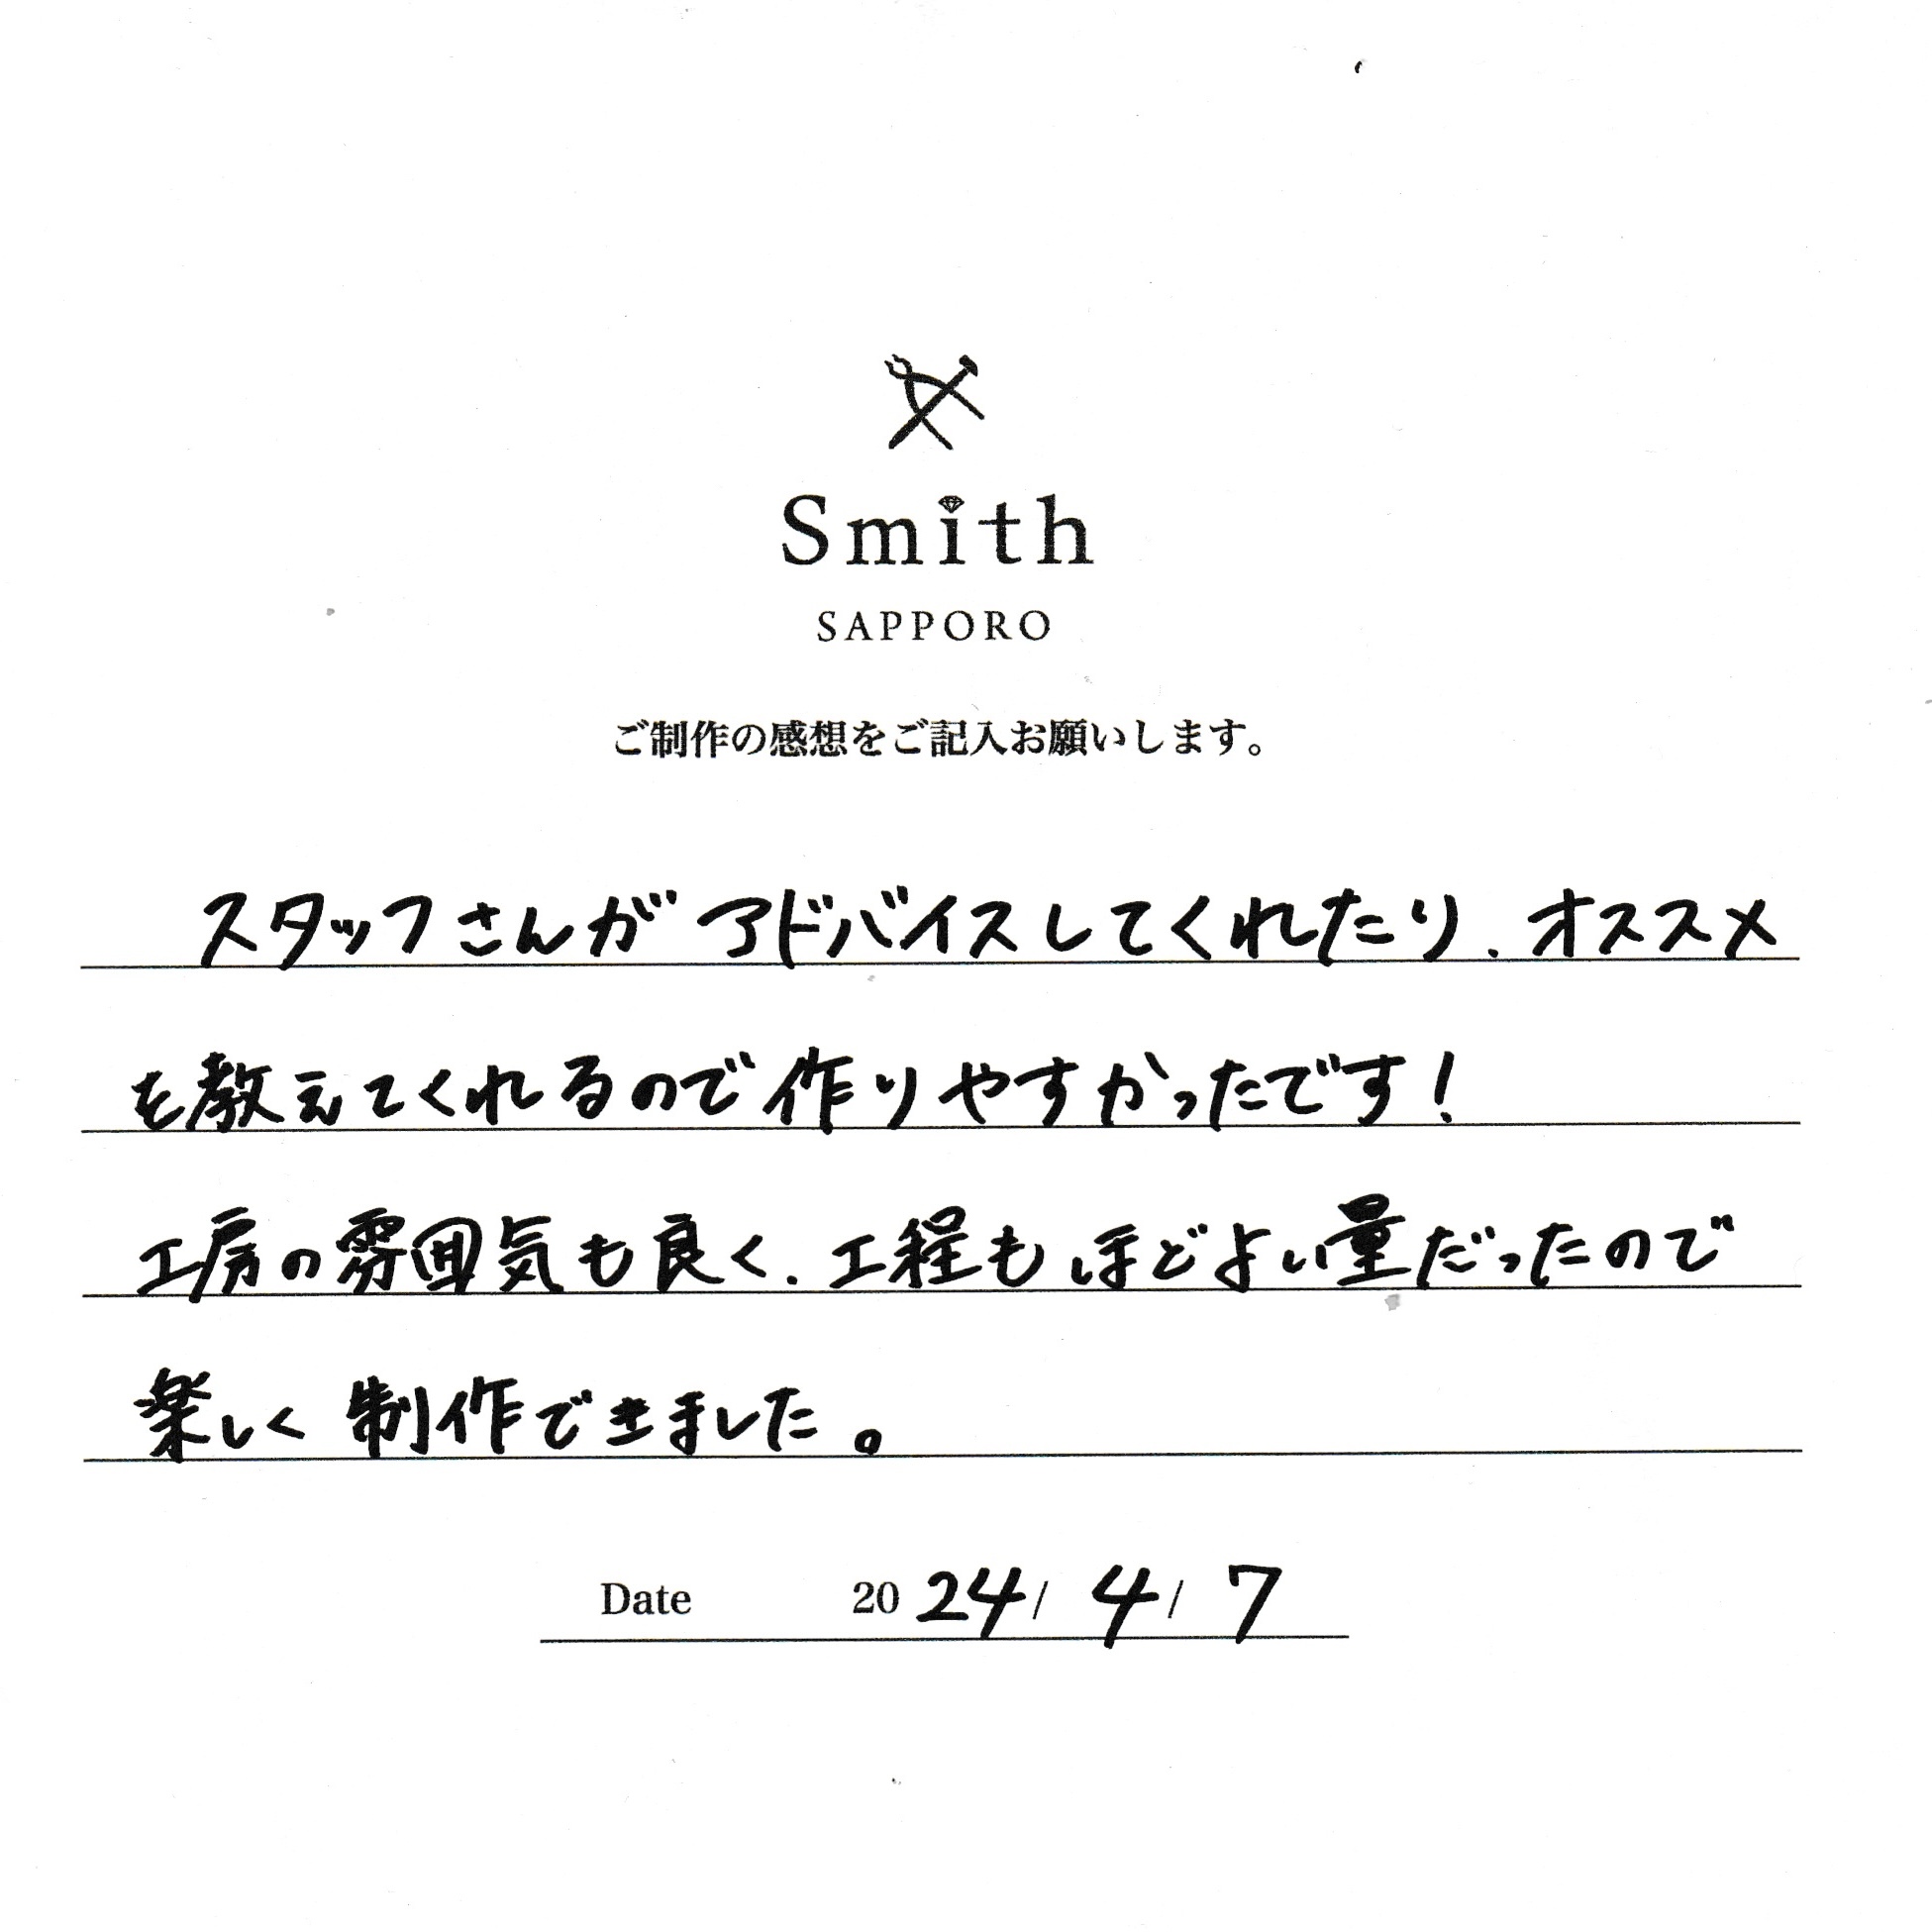 Smith
SAPPORO
ご制作の感想をご記入お願いします。
スタッフさんが アドバイスしてくれたり、オススメ
を教えてくれるので作りやすかったです!
工房の雰囲気も良く、工程もほどよい量だったので
楽しく制作できました。
Date 2024/4/7